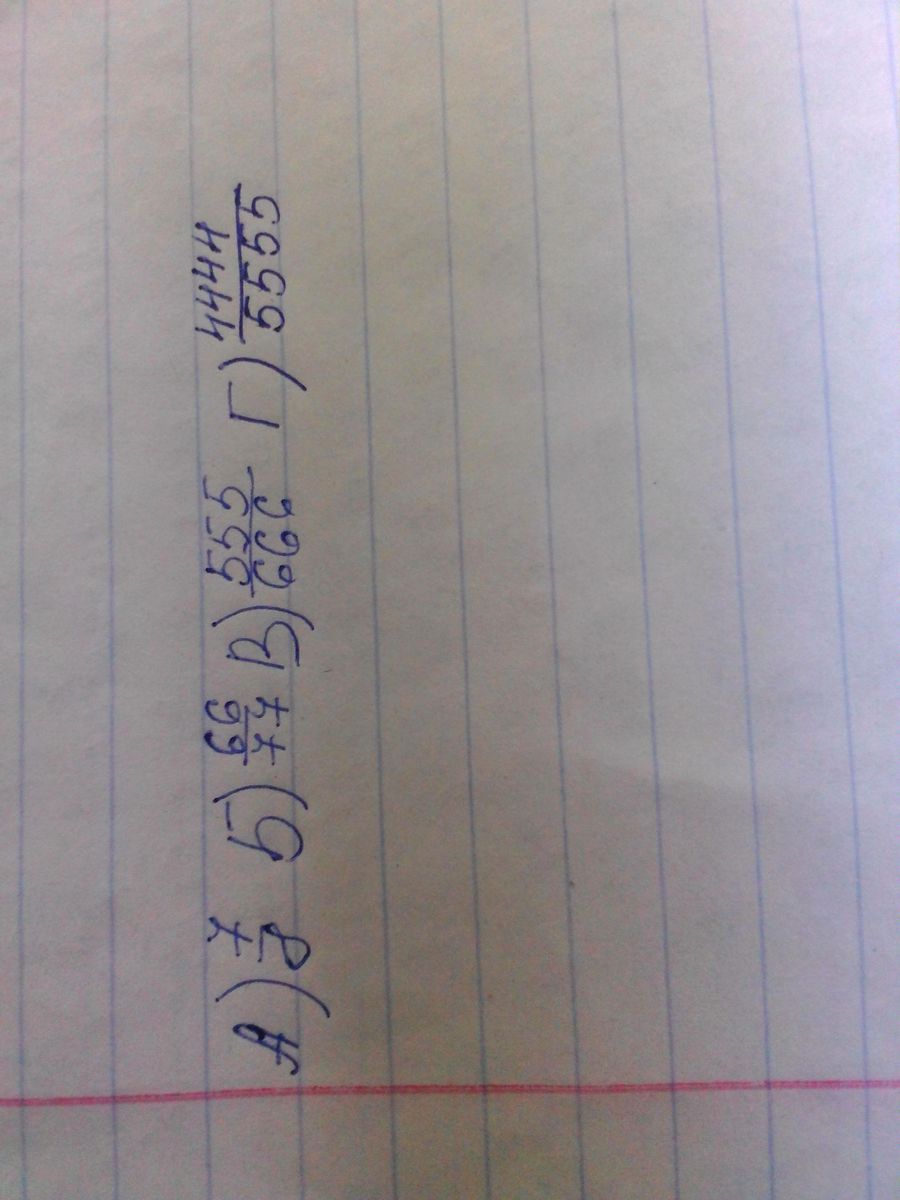 А) 7/8 Б) 66/77 В) 555/666 Г) 4444/5555